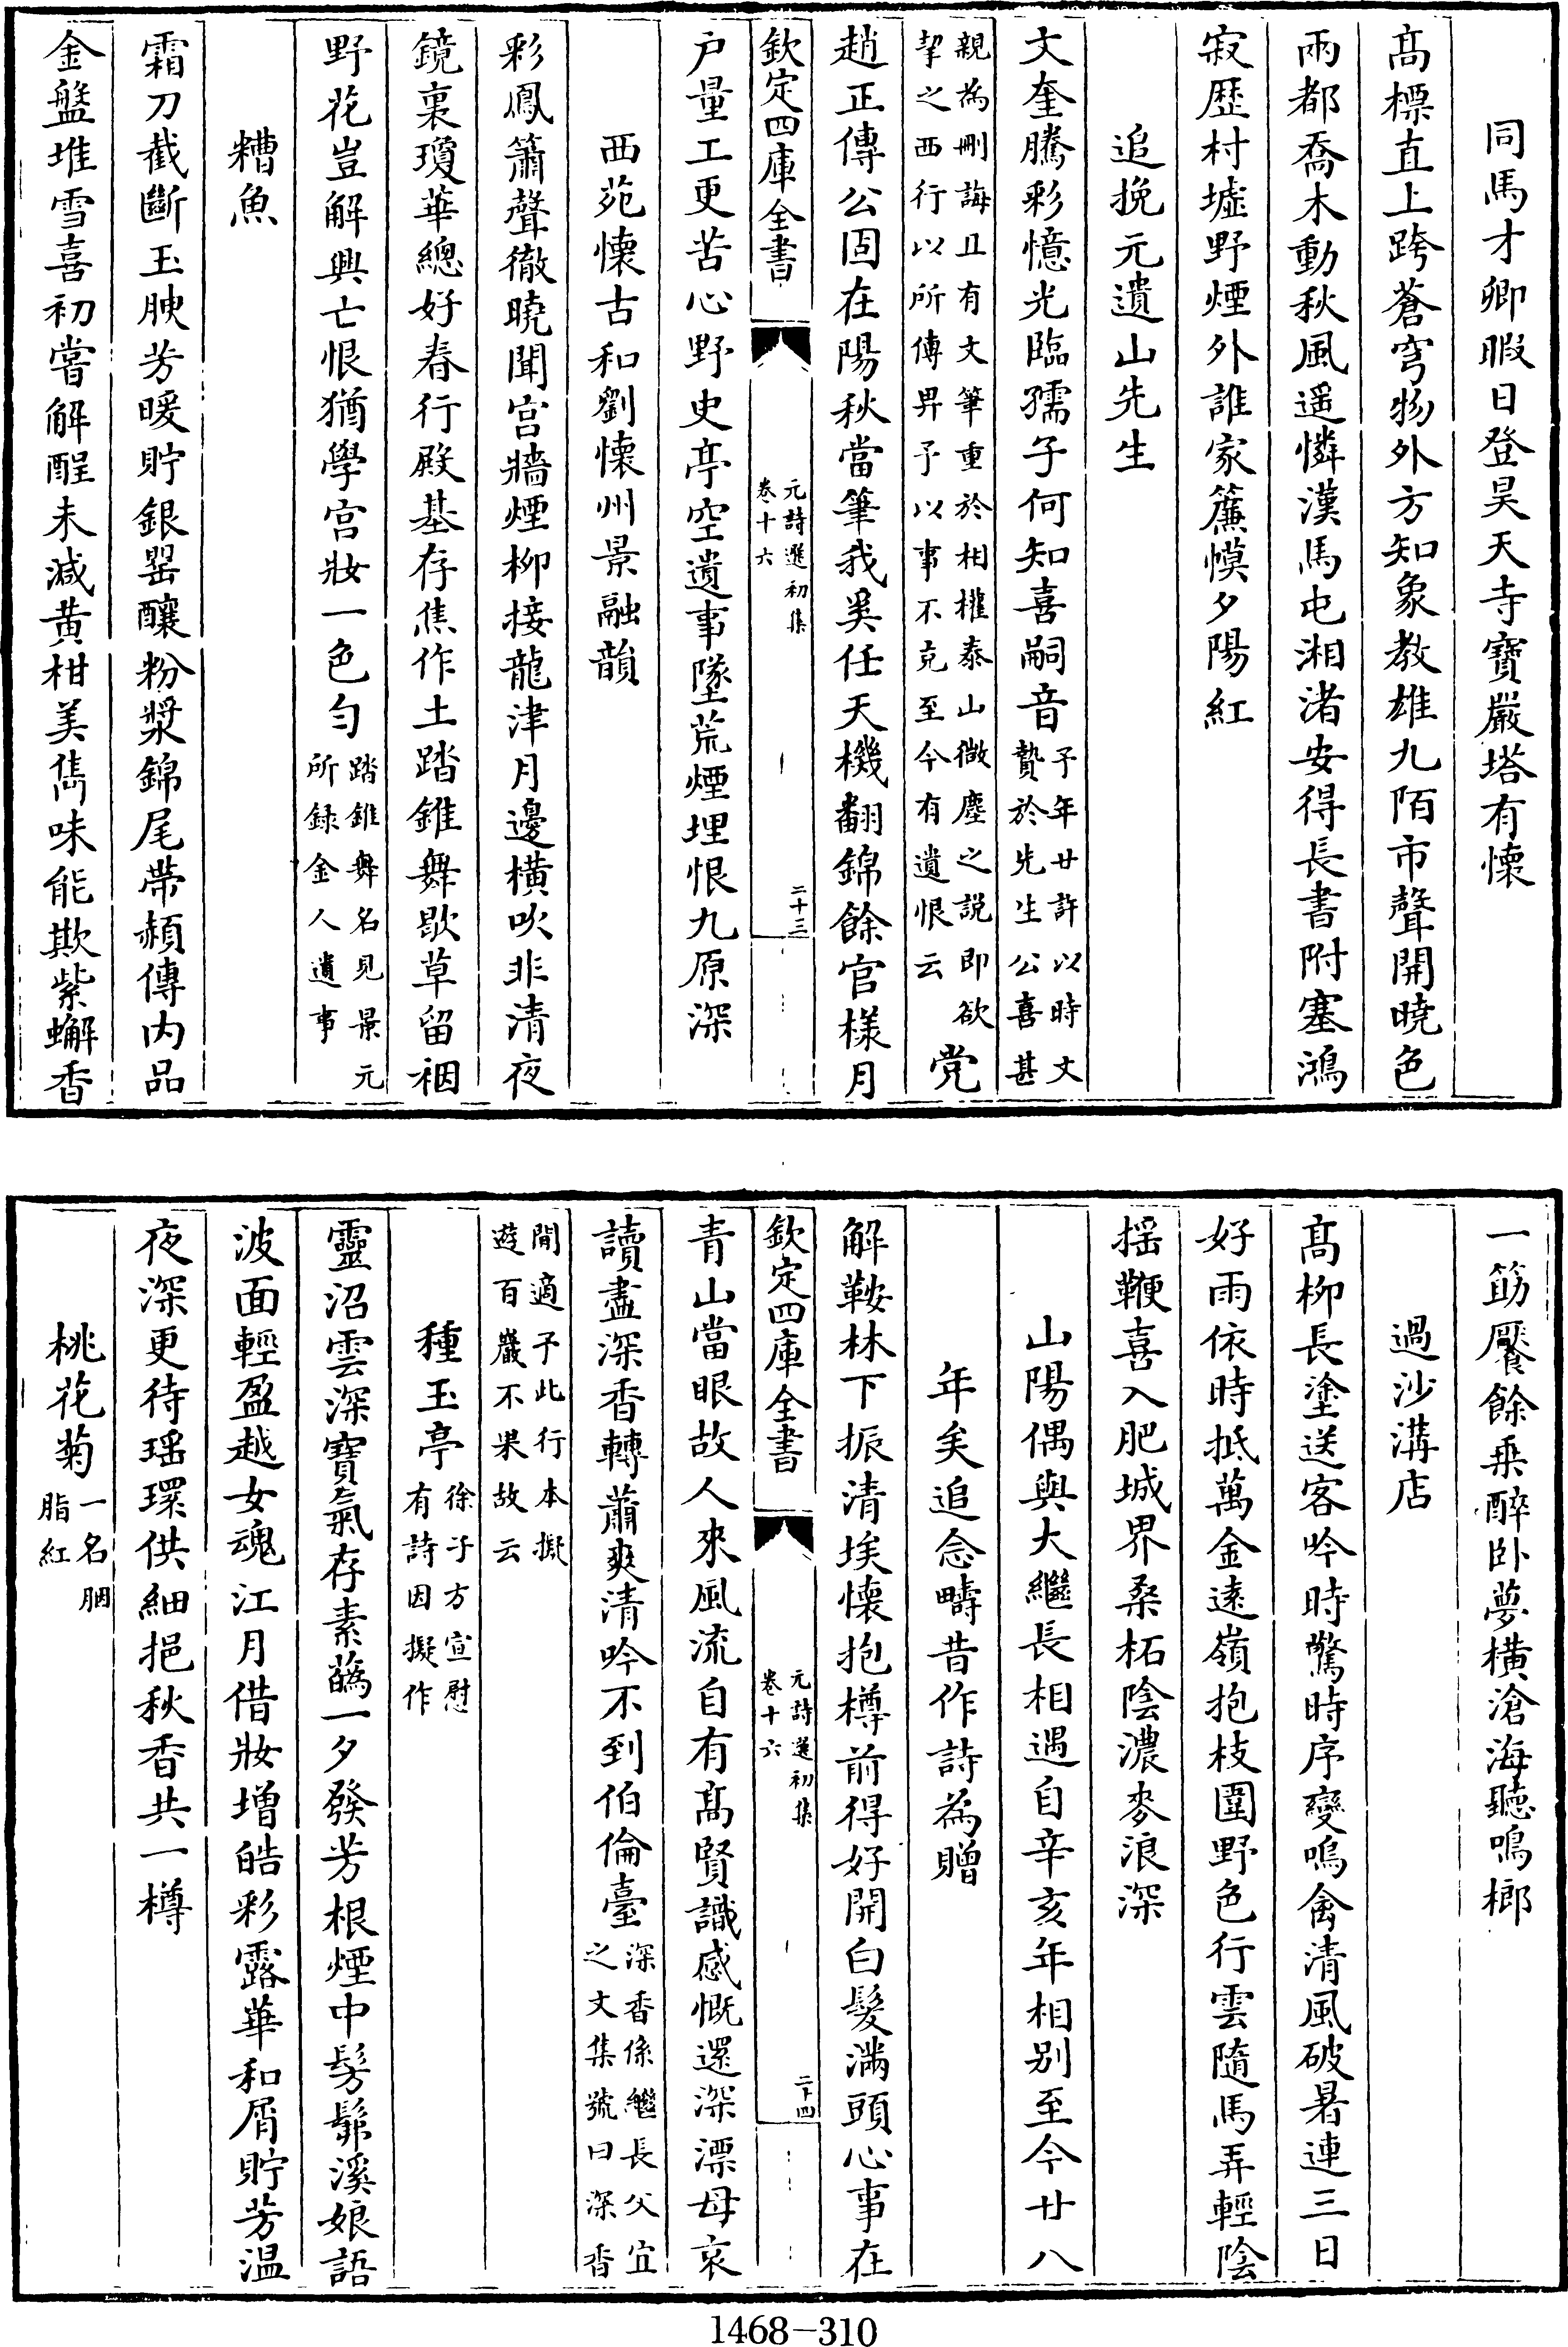 同馬才卿暇日登昊天寺寶嚴塔有懷
髙標直上跨蒼穹物外方知象教雄九陌市聲開曉色
兩都喬木動秋風遥憐漢馬屯湘渚安得長書附塞鴻
寂歴村墟野煙外誰家簾幙夕陽紅
追挽元遺山先生
文奎騰彩憶光臨孺子何知喜嗣音予年廿許以時文
贄於先生公喜甚
親為刪誨且有文筆重於相權泰山微塵之説即欲
挈之西行以所傳畀予以事不克至今有遺恨云
党
趙正傳公固在陽秋當筆我奚任天機翻錦餘官樣月
欽定四庫全書
元詩選初集
卷十六
二十三
户量工更苦心野史亭空遺事墜荒煙埋恨九原深
西苑懷古和劉懷州景融韻
彩鳳簫聲徹曉聞宫牆煙柳接龍津月邊橫吹非清夜
鏡裏瓊華總好春行殿基存焦作土踏錐舞歇草留裀
野花豈解興亡恨猶學宫妝一色匀踏錐舞名見景元
所録金人遺事
糟魚
霜刀截斷玉腴芳暖貯銀罌釀粉漿錦尾帶頳傳内品
金盤堆雪喜初嘗解酲未減黄柑美雋味能欺紫蠏香
一筯饜餘乗醉卧夢橫滄海聽鳴榔
過沙溝店
髙柳長塗送客吟時驚時序變鳴禽清風破暑連三日
好雨依時抵萬金逺嶺抱枝圍野色行雲隨馬弄輕陰
揺鞭喜入肥城界桑柘陰濃麥浪深
山陽偶與大繼長相遇自辛亥年相别至今廿八
年矣追念疇昔作詩為贈
解鞍林下振清埃懷抱樽前得好開白髮滿頭心事在
欽定四庫全書
元詩選初集
卷十六
二十四
青山當眼故人來風流自有髙賢識感慨還深漂母哀
讀盡深香轉蕭爽清吟不到伯倫臺深香係繼長父宜
之文集號曰深香
閒適予此行本擬
遊百巖不果故云
種玉亭徐子方宣慰
有詩因擬作
靈沼雲深寳氣存素蘤一夕發芳根煙中髣髴溪娘語
波面輕盈越女魂江月借妝增皓彩露華和屑貯芳温
夜深更待瑶環供細挹秋香共一樽
桃花菊一名胭
脂紅
1468-310